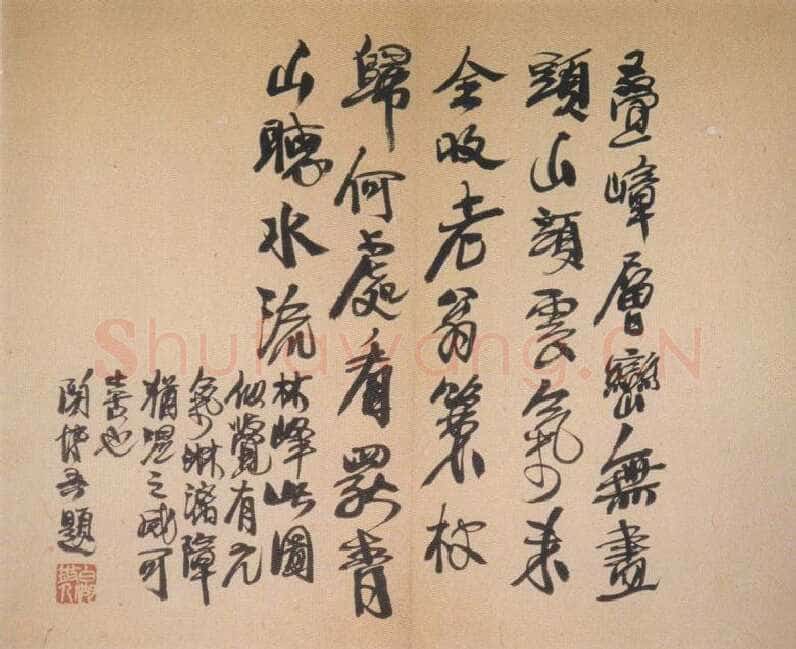 疊嶂層巒無盡
頭山雲氣未
全收老翁策杖
歸何處看罷青
山聽水流
林峰此圖
似覺有元
氣淋漓障
猶溼之感可
喜也
題
Shufawang.CN